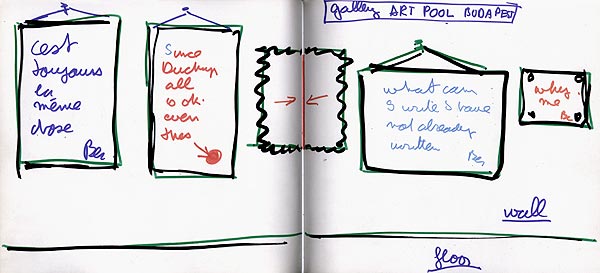 gallery ART POOL BUDAPEST
cest
toujours
la
même
chose
Ben
Since
Duchamp
all
is ok.
even
this
what can
I write I have
not already
written
Ben
why
me
Ben
wall
floor